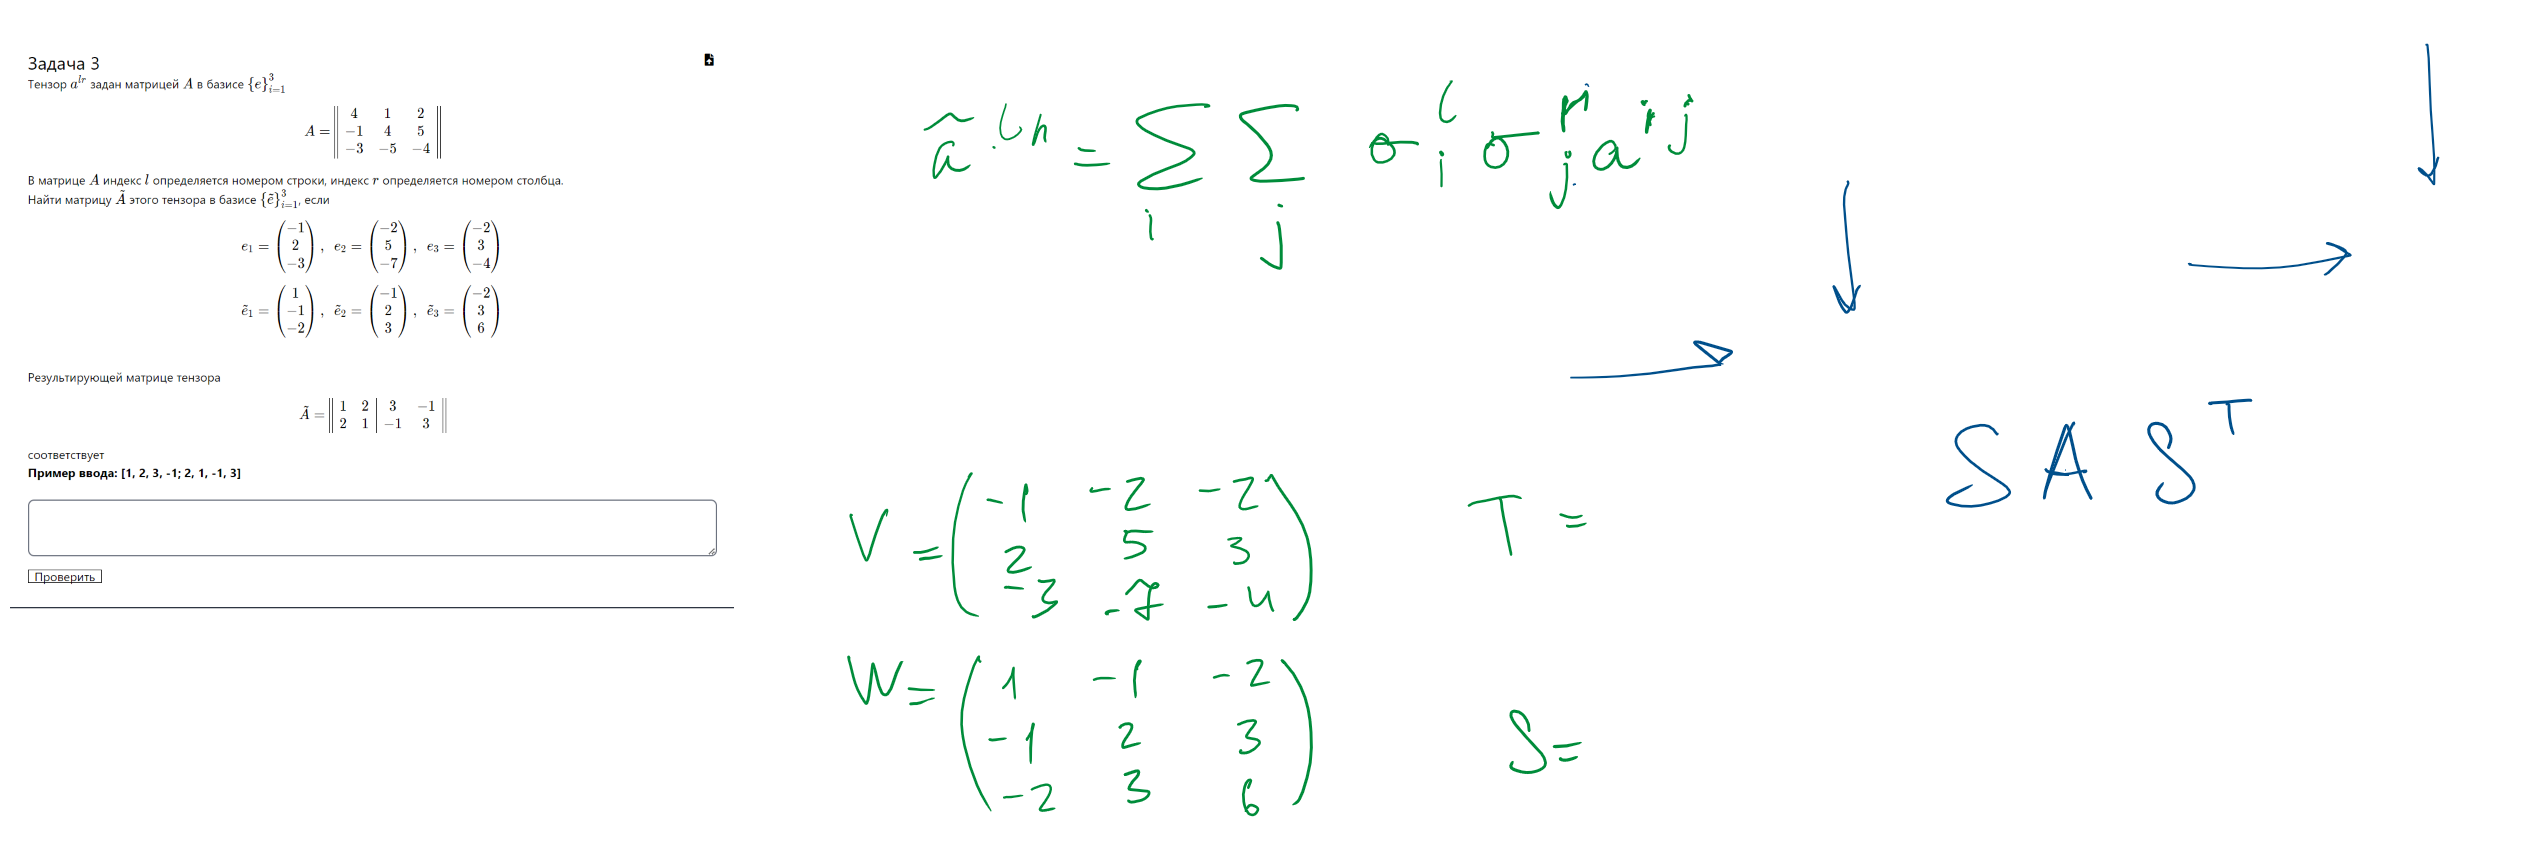 Задача 3
Тензор a^{lr} задан матрицей A в базисе {e}_{i=1}^3
A = ‖ 4 1 2
−1 4 5
−3 −5 −4 ‖
В матрице A индекс l определяется номером строки, индекс r определяется номером столбца.
Найти матрицу Ã этого тензора в базисе {ẽ}_{i=1}^3, если
e₁ = (−1 2 −3), e₂ = (−2 5 −7), e₃ = (−2 3 −4)
ẽ₁ = (1 −1 −2), ẽ₂ = (−1 2 3), ẽ₃ = (−2 3 6)
Результирующей матрице тензора
Ã = ‖ 1 2 | 3 −1
2 1 | −1 3 ‖
соответствует
Пример ввода: [1, 2, 3, -1; 2, 1, -1, 3]
Проверить
ã^{lr} = Σ_i Σ_j σ_i^l σ_j^r a^{ij}
S A S^T
V = (−1 −2 −2
2 5 3
−3 −7 −4)
T =
W = (1 −1 −2
−1 2 3
−2 3 6)
S =